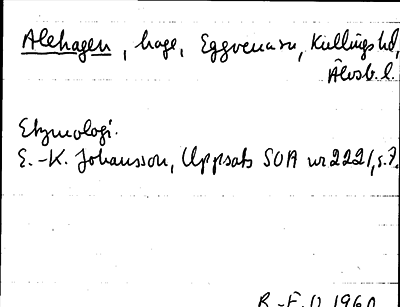 Alehagen, hage, Eggvena sn, Kullings hd,
Älvsb. l.
Etymologi.
E.-K. Johansson, Uppsats SOA nr 2221, s. 7.
R.-E. 1960